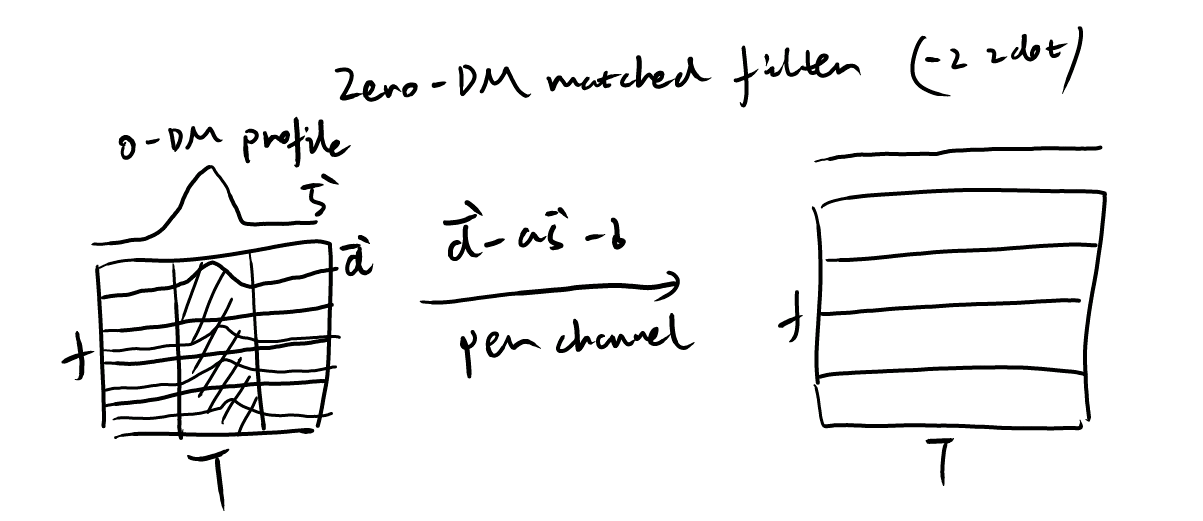 Zero-DM matched filter (-z zdot)
0-DM profile
s⃗
d⃗
d⃗ - as⃗ - b
per channel
f
T
f
T